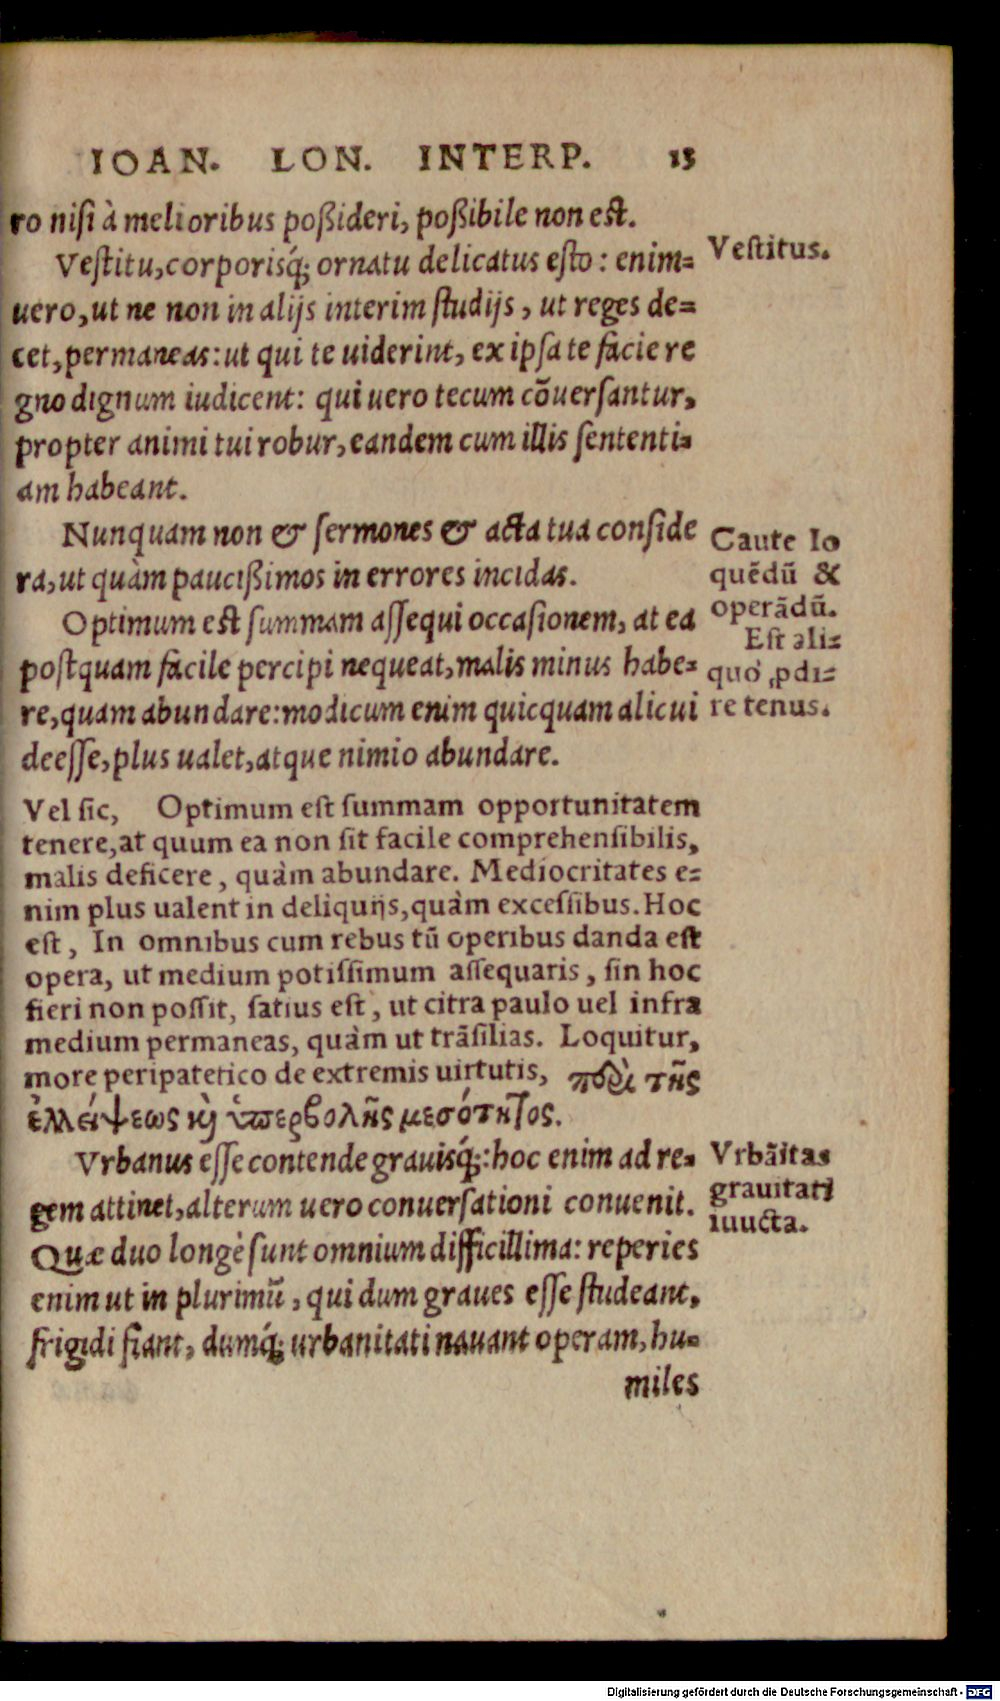 IOAN. LON. INTERP. 15
ro nisi à melioribus poßideri, poßibile non est.
Vestitu, corporisq́; ornatu delicatus esto: enim=
uero, ut ne non in alijs interim studijs, ut reges de=
cet, permaneas: ut qui te uiderint, ex ipsa te facie re
gno dignum iudicent: qui uero tecum cōuersantur,
propter animi tui robur, eandem cum illis sententi=
am habeant.
Vestitus.
Nunquam non & sermones & acta tua conside
ra, ut quàm paucißimos in errores incidas.
Optimum est summam assequi occasionem, at ea
postquam facile percipi nequeat, malis minus habe=
re, quam abundare: modicum enim quicquam alicui
deesse, plus ualet, atque nimio abundare.
Caute lo
quēdū &
operādū.
Est ali=
quo ꝓdi=
re tenus.
Vel sic, Optimum est summam opportunitatem
tenere, at quum ea non sit facile comprehensibilis,
malis deficere, quàm abundare. Mediocritates e=
nim plus ualent in deliquijs, quàm excessibus. Hoc
est, In omnibus cum rebus tū operibus danda est
opera, ut medium potissimum assequaris, sin hoc
fieri non possit, satius est, ut citra paulo uel infra
medium permaneas, quàm ut trāsilias. Loquitur,
more peripatetico de extremis uirtutis, περὶ τῆς
ἐλλείψεως καὶ ὑπερβολῆς μεσότητος.
Vrbanus esse contende grauisq́;: hoc enim ad re=
gem attinet, alterum uero conuersationi conuenit.
Quæ duo longè sunt omnium difficillima: reperies
enim ut in plurimū, qui dum graues esse studeant,
frigidi fiant, dumq́; urbanitati nauant operam, hu=
miles
Vrbāitas
grauitati
iuucta.
Digitalisierung gefördert durch die Deutsche Forschungsgemeinschaft - DFG